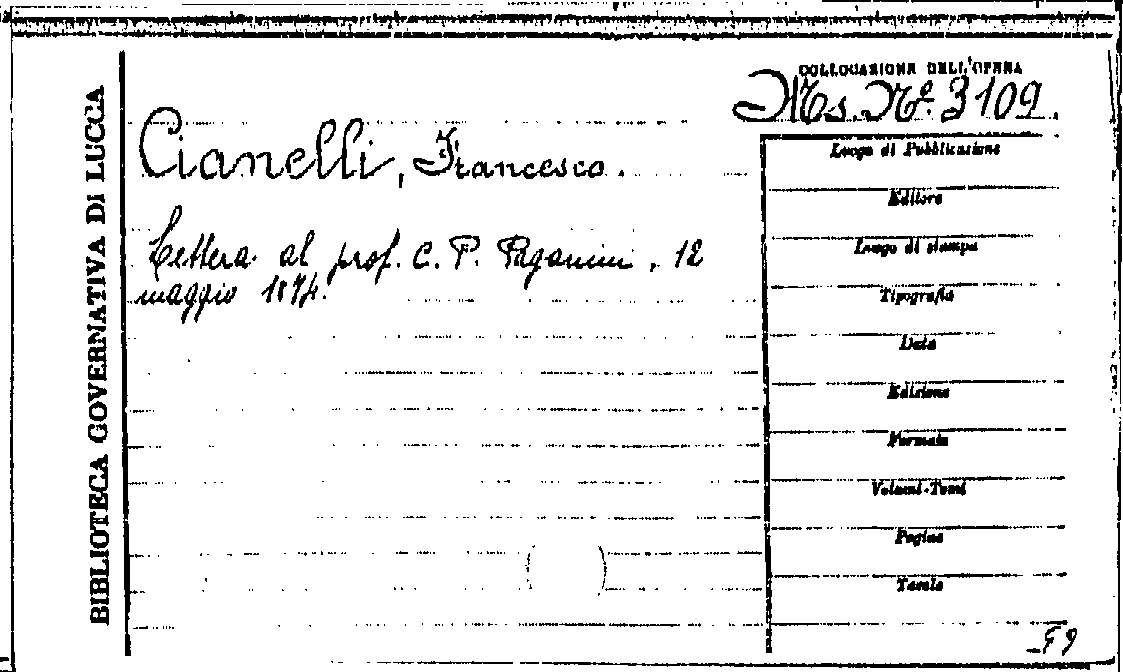 BIBLIOTECA GOVERNATIVA DI LUCCA
COLLOCAZIONE DELL'OPERA
Ms. Nº. 3109.
Cianelli, Francesco.
Lettera al prof. C. P. Paganini, 12
maggio 1874.
Luogo di Pubblicazione
Editore
Luogo di stampa
Tipografia
Data
Edizione
Formato
Volumi-Tomi
Pagine
Tavole